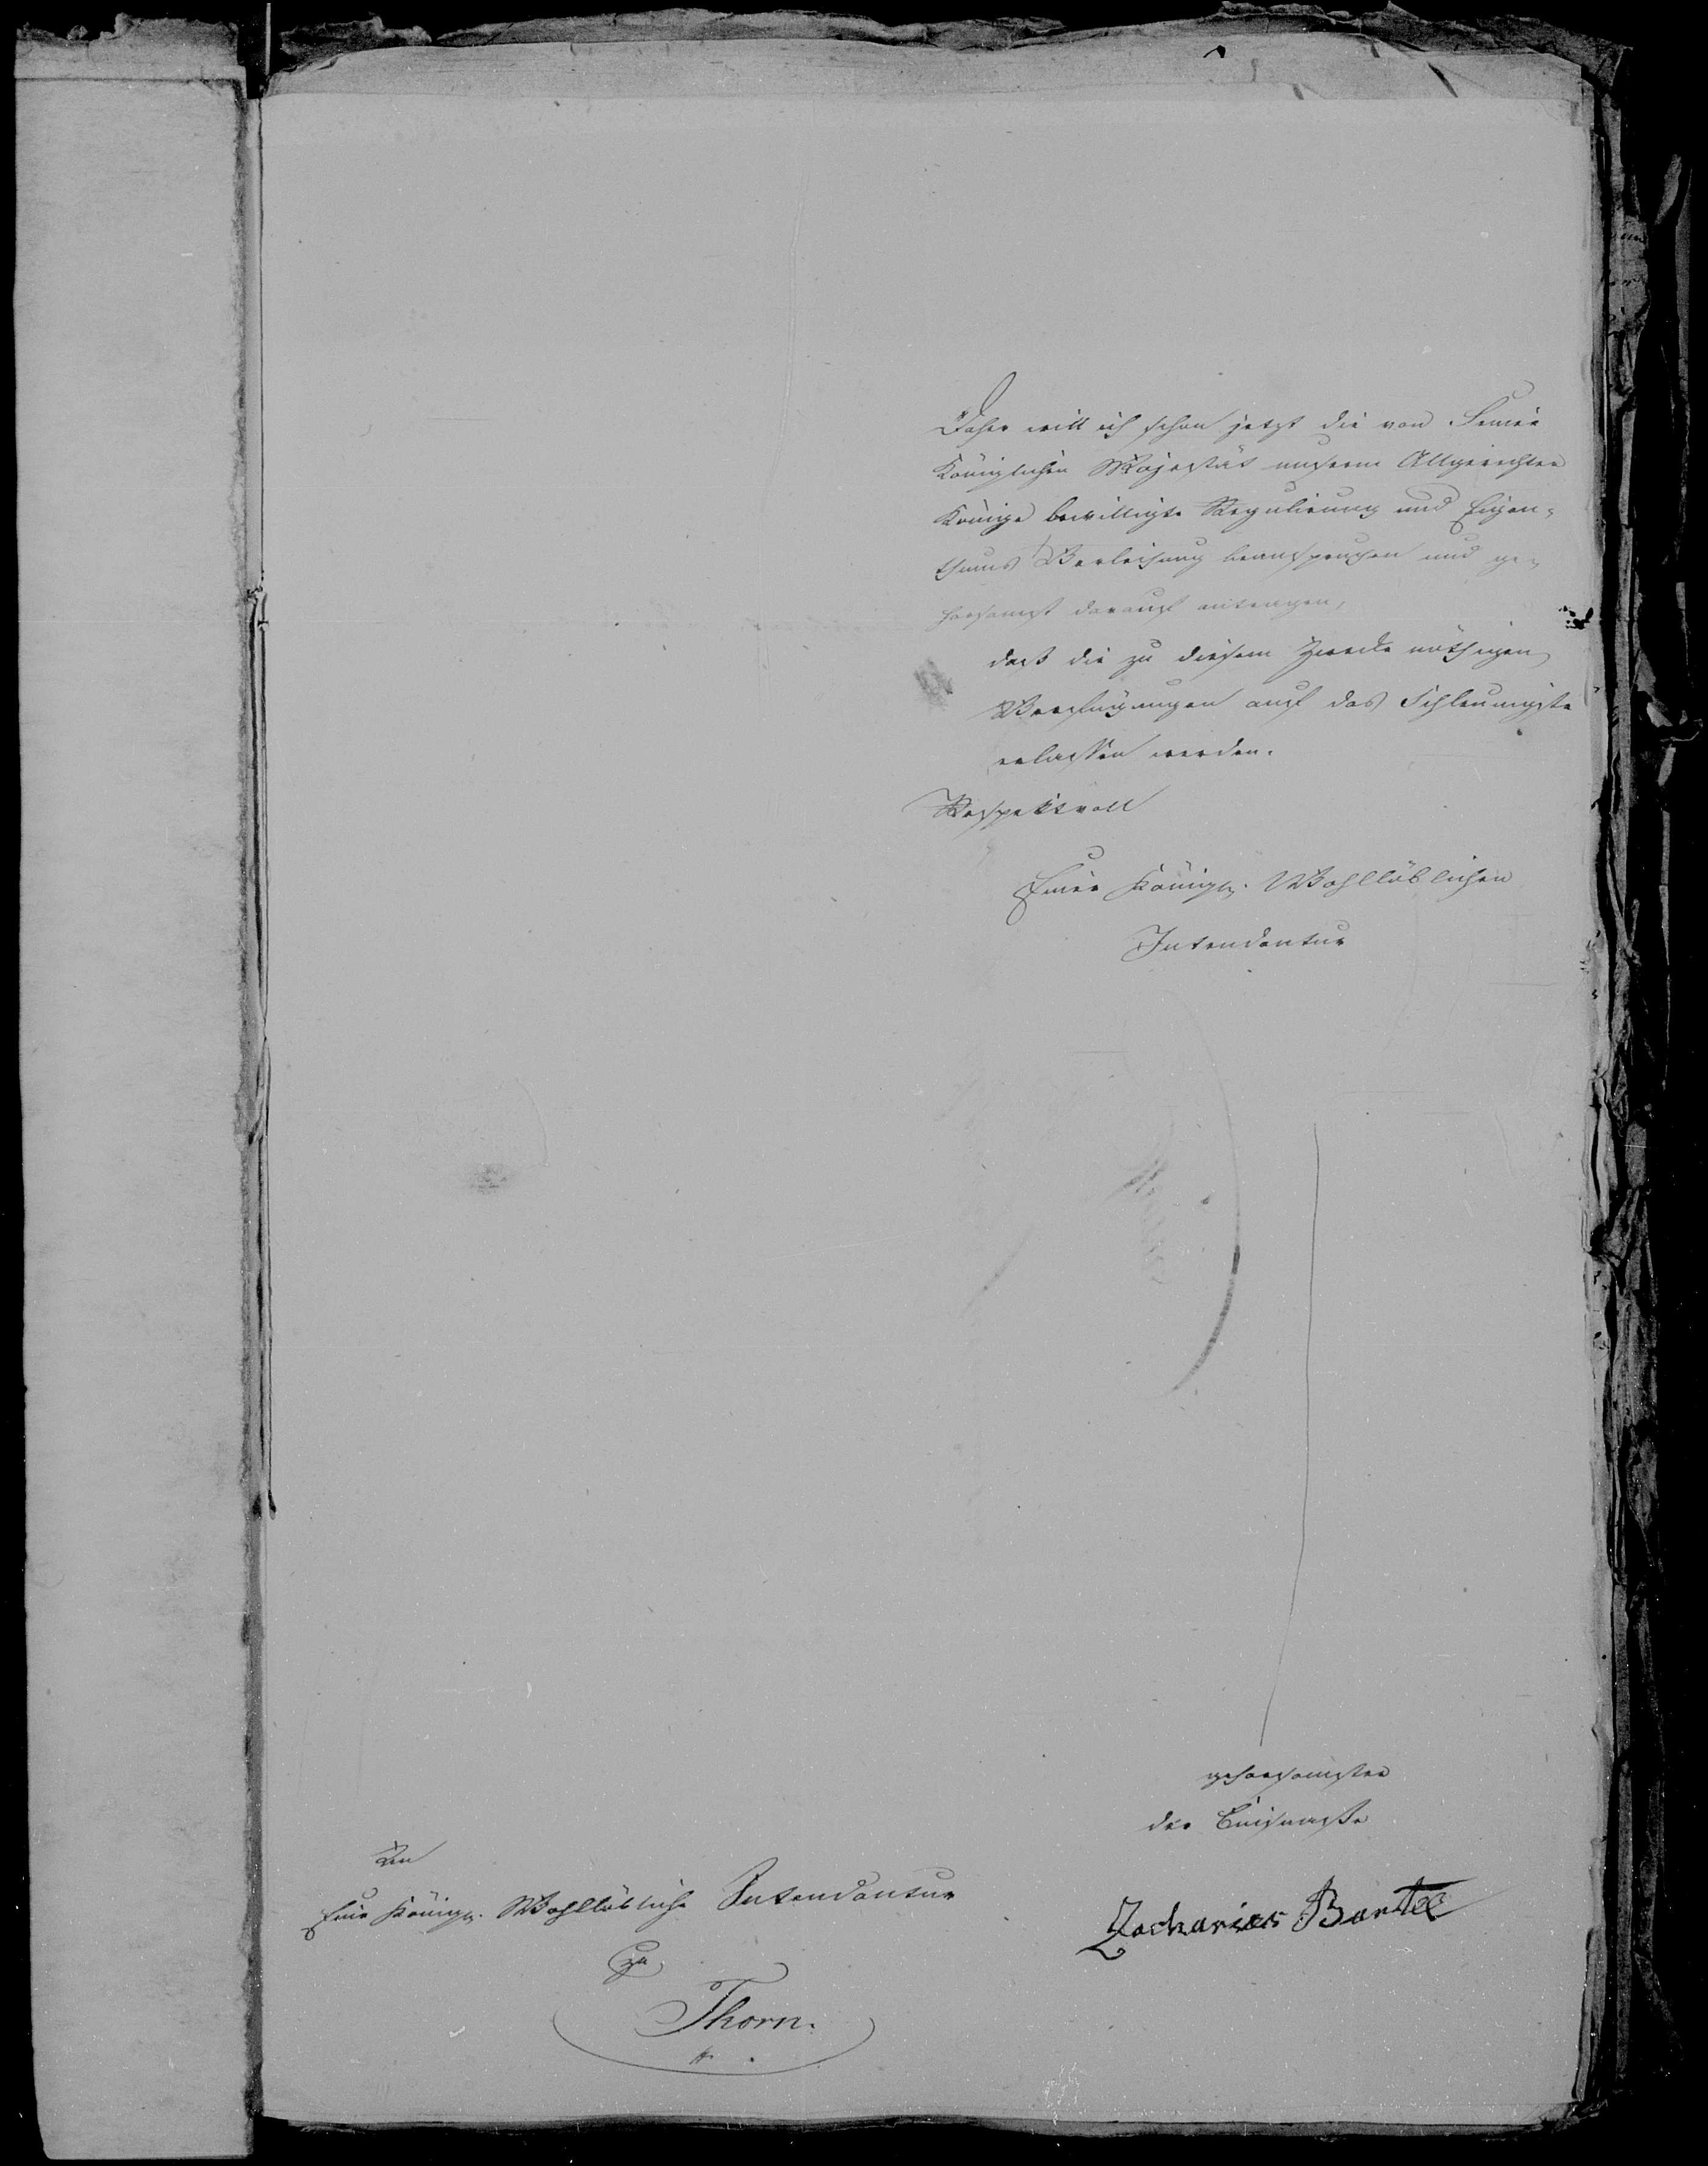 Daher will ich schon jetzt die von Seiner
Königlichen Majestät unserm Allgerechten
Könige bewilligte Regulierung und Eigen-
thums Verleihung beanspruchen und ge-
horsamst darauf antragen,
daß die zu diesem Zwecke nöthigen
Verfügungen auf das Schleunigste
erlassen werden.
Respektvoll
Einer Königl. Wohllöblichen
Intendantur
gehorsamster
der Einsasse
Zacharias Bartel
An
Eine Königl. Wohllöbliche Intendantur
zu
Thorn.